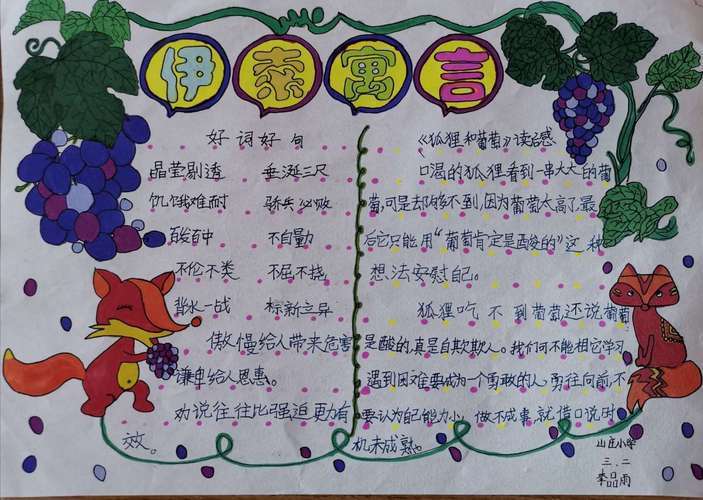 伊索寓言
好词好句
晶莹剔透 垂涎三尺
饥饿难耐 骄兵必败
百发百中 不自量力
不伦不类 不屈不挠
背水一战 标新立异
傲慢给人带来危害
谦卑给人恩惠。
劝说往往比强迫更有
效。
《狐狸和葡萄》读后感
口渴的狐狸看到一串大大的葡
萄,可是却够不到,因为葡萄太高了最
后它只能用“葡萄肯定是酸的”这种
想法安慰自己。
狐狸吃不到葡萄还说葡萄
是酸的真是自欺欺人。我们可不能相它学习
遇到困难要成为一个勇敢的人,勇往向前,不
要认为自己能力小,做不成事,就借口说时
机未成熟。
山庄小学
三.二
李品雨